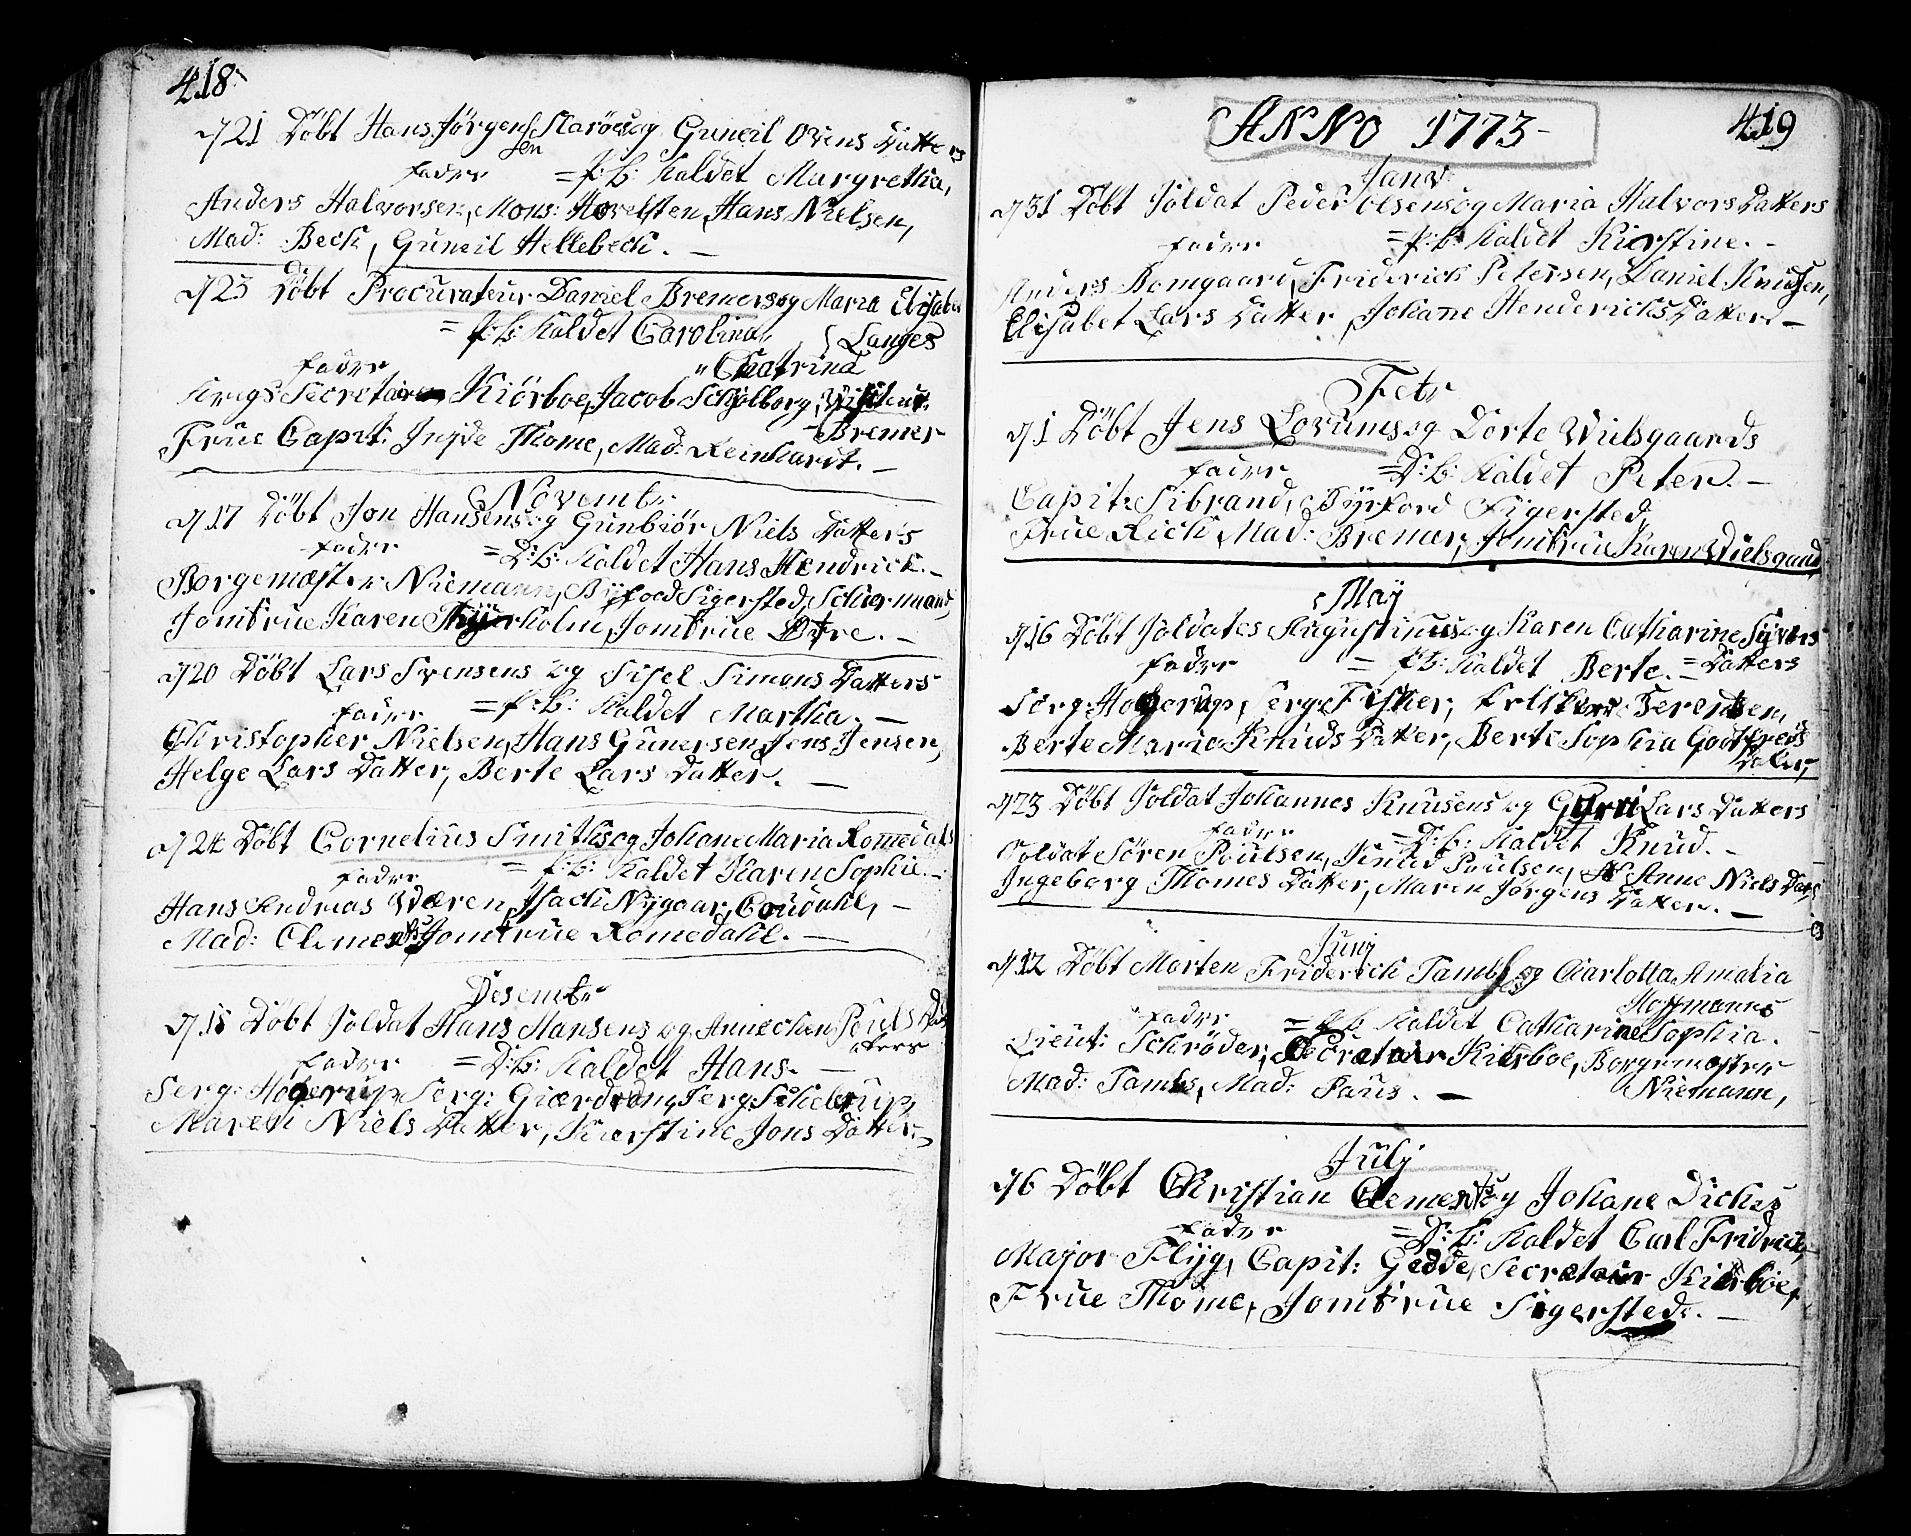 418
d/21 Döbt Hans Jörgensen Maröes og Guneil Ovens Datters
fader = P: B: Kaldet Margretha,
Anders Halvorsen, Mons: Hovelsten, Hans Nielsen,
Mad: Beck, Guneil Hellebeck. –
d/25 Döbt Procurateur Daniel Bremers og Maria Elisabet
= P: B: Kaldet Carolina Langes
fader Chatrina
Krigs Secretair Kiörboe, Jacob Schjölborg,
Frue Capit: Ingde Thome, Mad: Reinhardt. – Bremer
Novembr:
d/17 Döbt Jon Hansens og Gunbiör Niels Datter's
fader = D: B: Kaldet Hans Hendrick. –
Borgemæster Niemann, Byfoed Sigersted, Schiermand,
Jomfrue Karen Thyrholm, Jomfrue Øtre. –
d/20 Döbt Lars Svensens og Sisel Simons Datters
fader = P: B: Kaldet Martha. –
Christopher Nielsen, Hans Gunersen, Jens Jensen,
Helge Lars Datter, Berte Lars Datter. –
d/24 Döbt Cornelius Smiths og Johane Maria Romedals
fader = P: B: Kaldet Karen Sophie. –
Hans Andreas Wæren, Isach Nygaar, Coudahl, –
Mad: Clements, Jomfrue Romedahl. –
Desembr
d/15 Döbt Soldat Hans Hansens og Annechen Pouls Datters
fader = D: B: Kaldet Hans. –
Serg: Hogerup, Serg: Giærdrom, Serg: Schelrup,
Maren Niels Datter, Kierstine Jons Datter. –
ANNO 1773 –
419
Janv:
d/31 Döbt Soldat Peder Olsens og Maria Halvors Datters
fader = P: B: Kaldet Kirstine. –
Anders Domgaard, Friderich Petersen, Daniel Knudsen,
Elisabet Lars Datter, Johane Hendericks Datter. –
Febr
d/1 Döbt Jens Lovums og Dorte Wielsgaards
fader = D: B: Kaldet Peter. –
Capit: Sibrand, Byford Sigersted,
Frue Rich, Mad: Bremer, Jomfrue Karen Wielsgaard
May
d/16 Döbt Soldates Augustinus og Karen Catharine Syvers
fader = P: B: Kaldet Berte. – = Datters
Serg: Hogerup, Serg: Fisher, Berentsen,
Berte Maria Knuds Datter, Berte Sophia Godtfreds Datter,
d/23 Döbt Soldat Johannes Knusens og Guri Lars Datters
fader = D: B: Kaldet Knud. –
Soldat Sören Poulsen, Knud Poulsen, Anne Niels Dat:
Ingeborg Thomes Datter, Maren Jörgens Datter. –
Junj
d/12 Döbt Morten Friderich Tambs og Charlotta Amalia
Hoffmanns
fader = P: B: Kaldet Catharine Sophia.
Lieut: Schröder, Secretair Kierboe, Borgemæster
Mad: Tambs, Mad: Paus. – Niemann,
Julj
d/6 Döbt Christian Clements og Johane Dichs
fader = D: B: Kaldet Carl Fridrich,
Major Flyg, Capit: Gedde, Secretair Kierboe,
Frue Thome, Jomfrue Sigersted. –